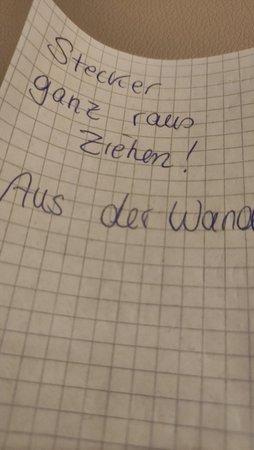 Stecker
ganz raus
Ziehen!
Aus der Wand